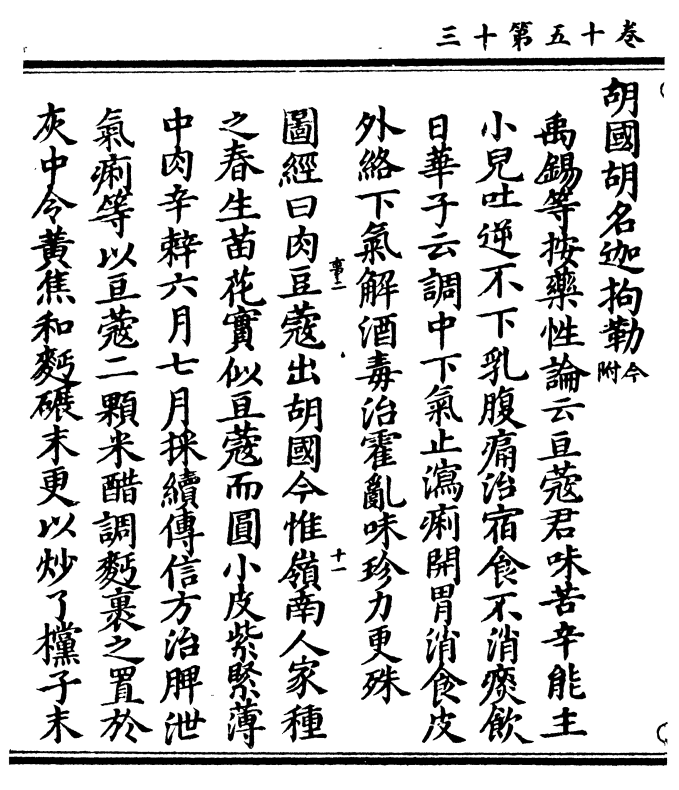 卷十五第十三
胡國胡名迦拘勒今附
禹錫等按藥性論云豆蔻君味苦辛能主
小兒吐逆不下乳腹痛治宿食不消痰飲
日華子云調中下氣止瀉痢開胃消食皮
外絡下氣解酒毒治霍亂味珍力更殊
圖經曰肉豆蔻出胡國今惟嶺南人家種
之春生苗花實似豆蔻而圓小皮紫緊薄
中肉辛辣六月七月採續傳信方治脾泄
氣痢等以豆蔻二顆米醋調麪裹之置於
灰中令黃焦和麪碾末更以炒了欓子末
十一